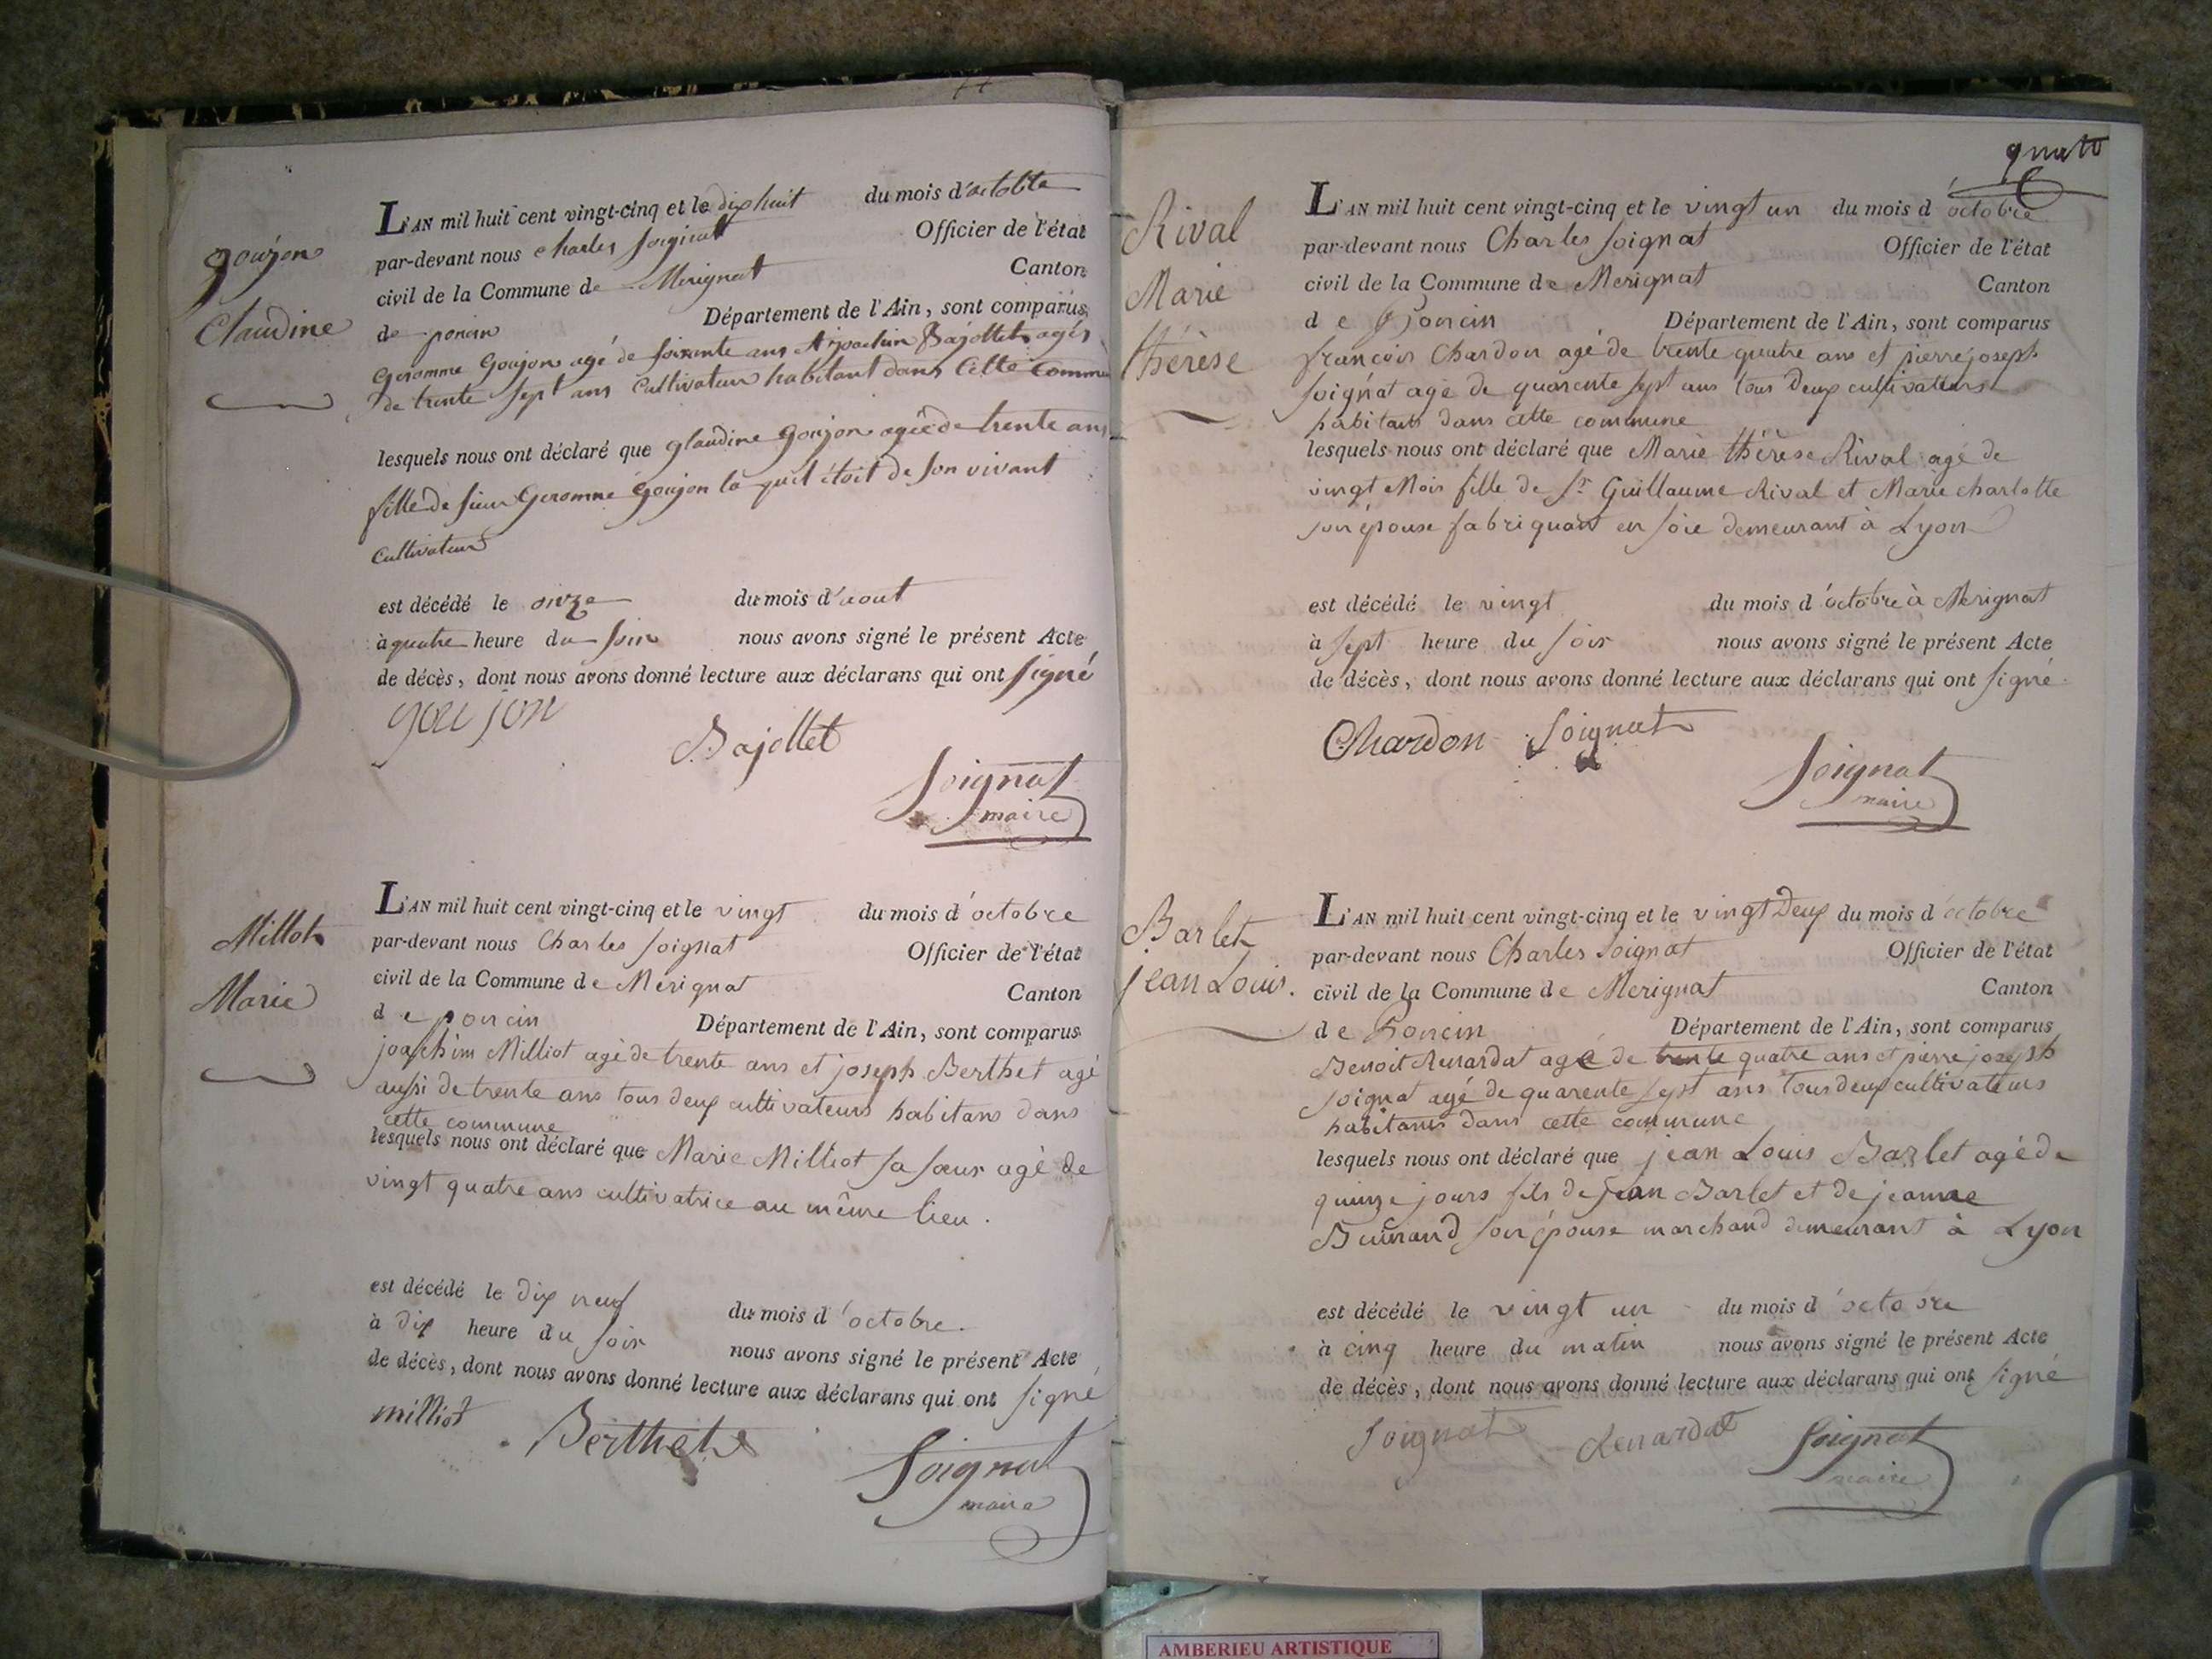 goujon
Claudine
L'AN mil huit cent vingt-cinq et le dix huit du mois d'octobre
par-devant nous charles Soignat Officier de l'état
civil de la Commune de Merignat Canton
de poncin Département de l'Ain, sont comparus
Geromme Goujon agé de soixante ans et joachim Bajollet agés
de trente sept ans Cultivateur habitant dans Cette Commu
lesquels nous ont déclaré que glaudine goujon ageé de trente ans
fille de sieur Geromme goujon la quil étoit de son vivant
Cultivateur
est décédé le onze du mois d'aout
à quatre heure du soir nous avons signé le présent Acte
de décès, dont nous avons donné lecture aux déclarans qui ont signé
goujon
Bajollet
Soignat
maire
Milliot
Marie
L'AN mil huit cent vingt-cinq et le vingt du mois d'octobre
par-devant nous Charles Soignat Officier de l'état
civil de la Commune de Merignat Canton
de poncin Département de l'Ain, sont comparus
joachim Milliot agé de trente ans et joseph Berthet agé
aussi de trente ans tous deux cultivateurs habitans dans
cette commune
lesquels nous ont déclaré que Marie Milliot sa sœur agé de
vingt quatre ans cultivatrice au même lieu.
est décédé le dix neuf du mois d'octobre.
à dix heure du soir nous avons signé le présent Acte
de décès, dont nous avons donné lecture aux déclarans qui ont signé
milliot
Berthet
Soignat
maire
Rival
Marie
thérèse
L'AN mil huit cent vingt-cinq et le vingt un du mois d'octobre
par-devant nous Charles Soignat Officier de l'état
civil de la Commune de Merignat Canton
de Poncin Département de l'Ain, sont comparus
françois Chardon agé de trente quatre ans et pierre joseph
Soignat agé de quarente sept ans tous deux cultivateurs
habitans dans cette commune
lesquels nous ont déclaré que Marie thérèse Rival agé de
vingt Mois fille de Sr Guillaume Rival et Marie charlotte
son épouse fabriquant en soie demeurant à Lyon
est décédé le vingt du mois d'octobre à Merignat
à sept heure du soir nous avons signé le présent Acte
de décès, dont nous avons donné lecture aux déclarans qui ont signé
Chardon Soignat
Soignat
maire
Barlet
jean Louis.
L'AN mil huit cent vingt-cinq et le vingt Deux du mois d'octobre
par-devant nous Charles Soignat Officier de l'état
civil de la Commune de Merignat Canton
de Poncin Département de l'Ain, sont comparus
Benoit Renardat agé de trente quatre ans et pierre joseph
Soignat agé de quarente sept ans tous deux cultivateurs
habitans dans cette commune
lesquels nous ont déclaré que jean Louis Barlet agé de
quinze jours fils de jean Barlet et de jeanne
son épouse marchand demeurant à Lyon
est décédé le vingt un du mois d'octobre
à cinq heure du matin nous avons signé le présent Acte
de décès, dont nous avons donné lecture aux déclarans qui ont signé
Soignat Renardat Soignat
maire
AMBERIEU ARTISTIQUE